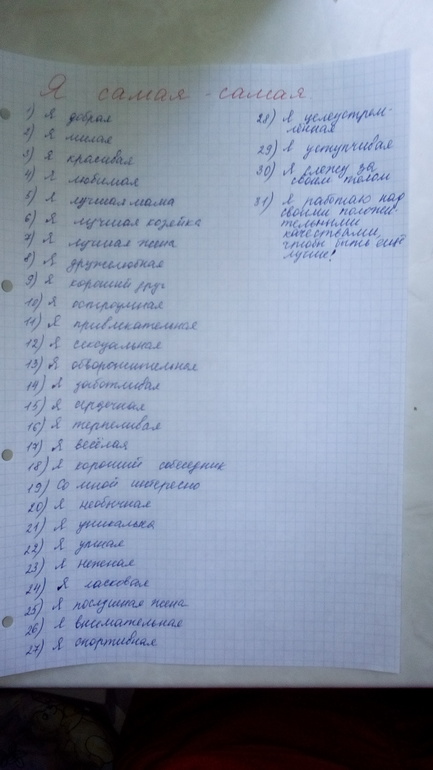 Я самая-самая
1) Я добрая
2) Я милая
3) Я красивая
4) Я любимая
5) Я лучшая мама
6) Я лучшая хозяйка
7) Я лучшая жена
8) Я дружелюбная
9) Я хороший друг
10) Я остроумная
11) Я привлекательная
12) Я сексуальная
13) Я обворожительная
14) Я заботливая
15) Я сердечная
16) Я терпеливая
17) Я весёлая
18) Я хороший собеседник
19) Со мной интересно
20) Я необычная
21) Я уникальна
22) Я умная
23) Я нежная
24) Я ласковая
25) Я послушная жена
26) Я внимательная
27) Я спортивная
28) Я целеустрем-
лённая
29) Я уступчивая
30) Я слежу за
своим телом
31) Я работаю над
своими положи-
тельными
качествами,
чтобы быть ещё
лучше!